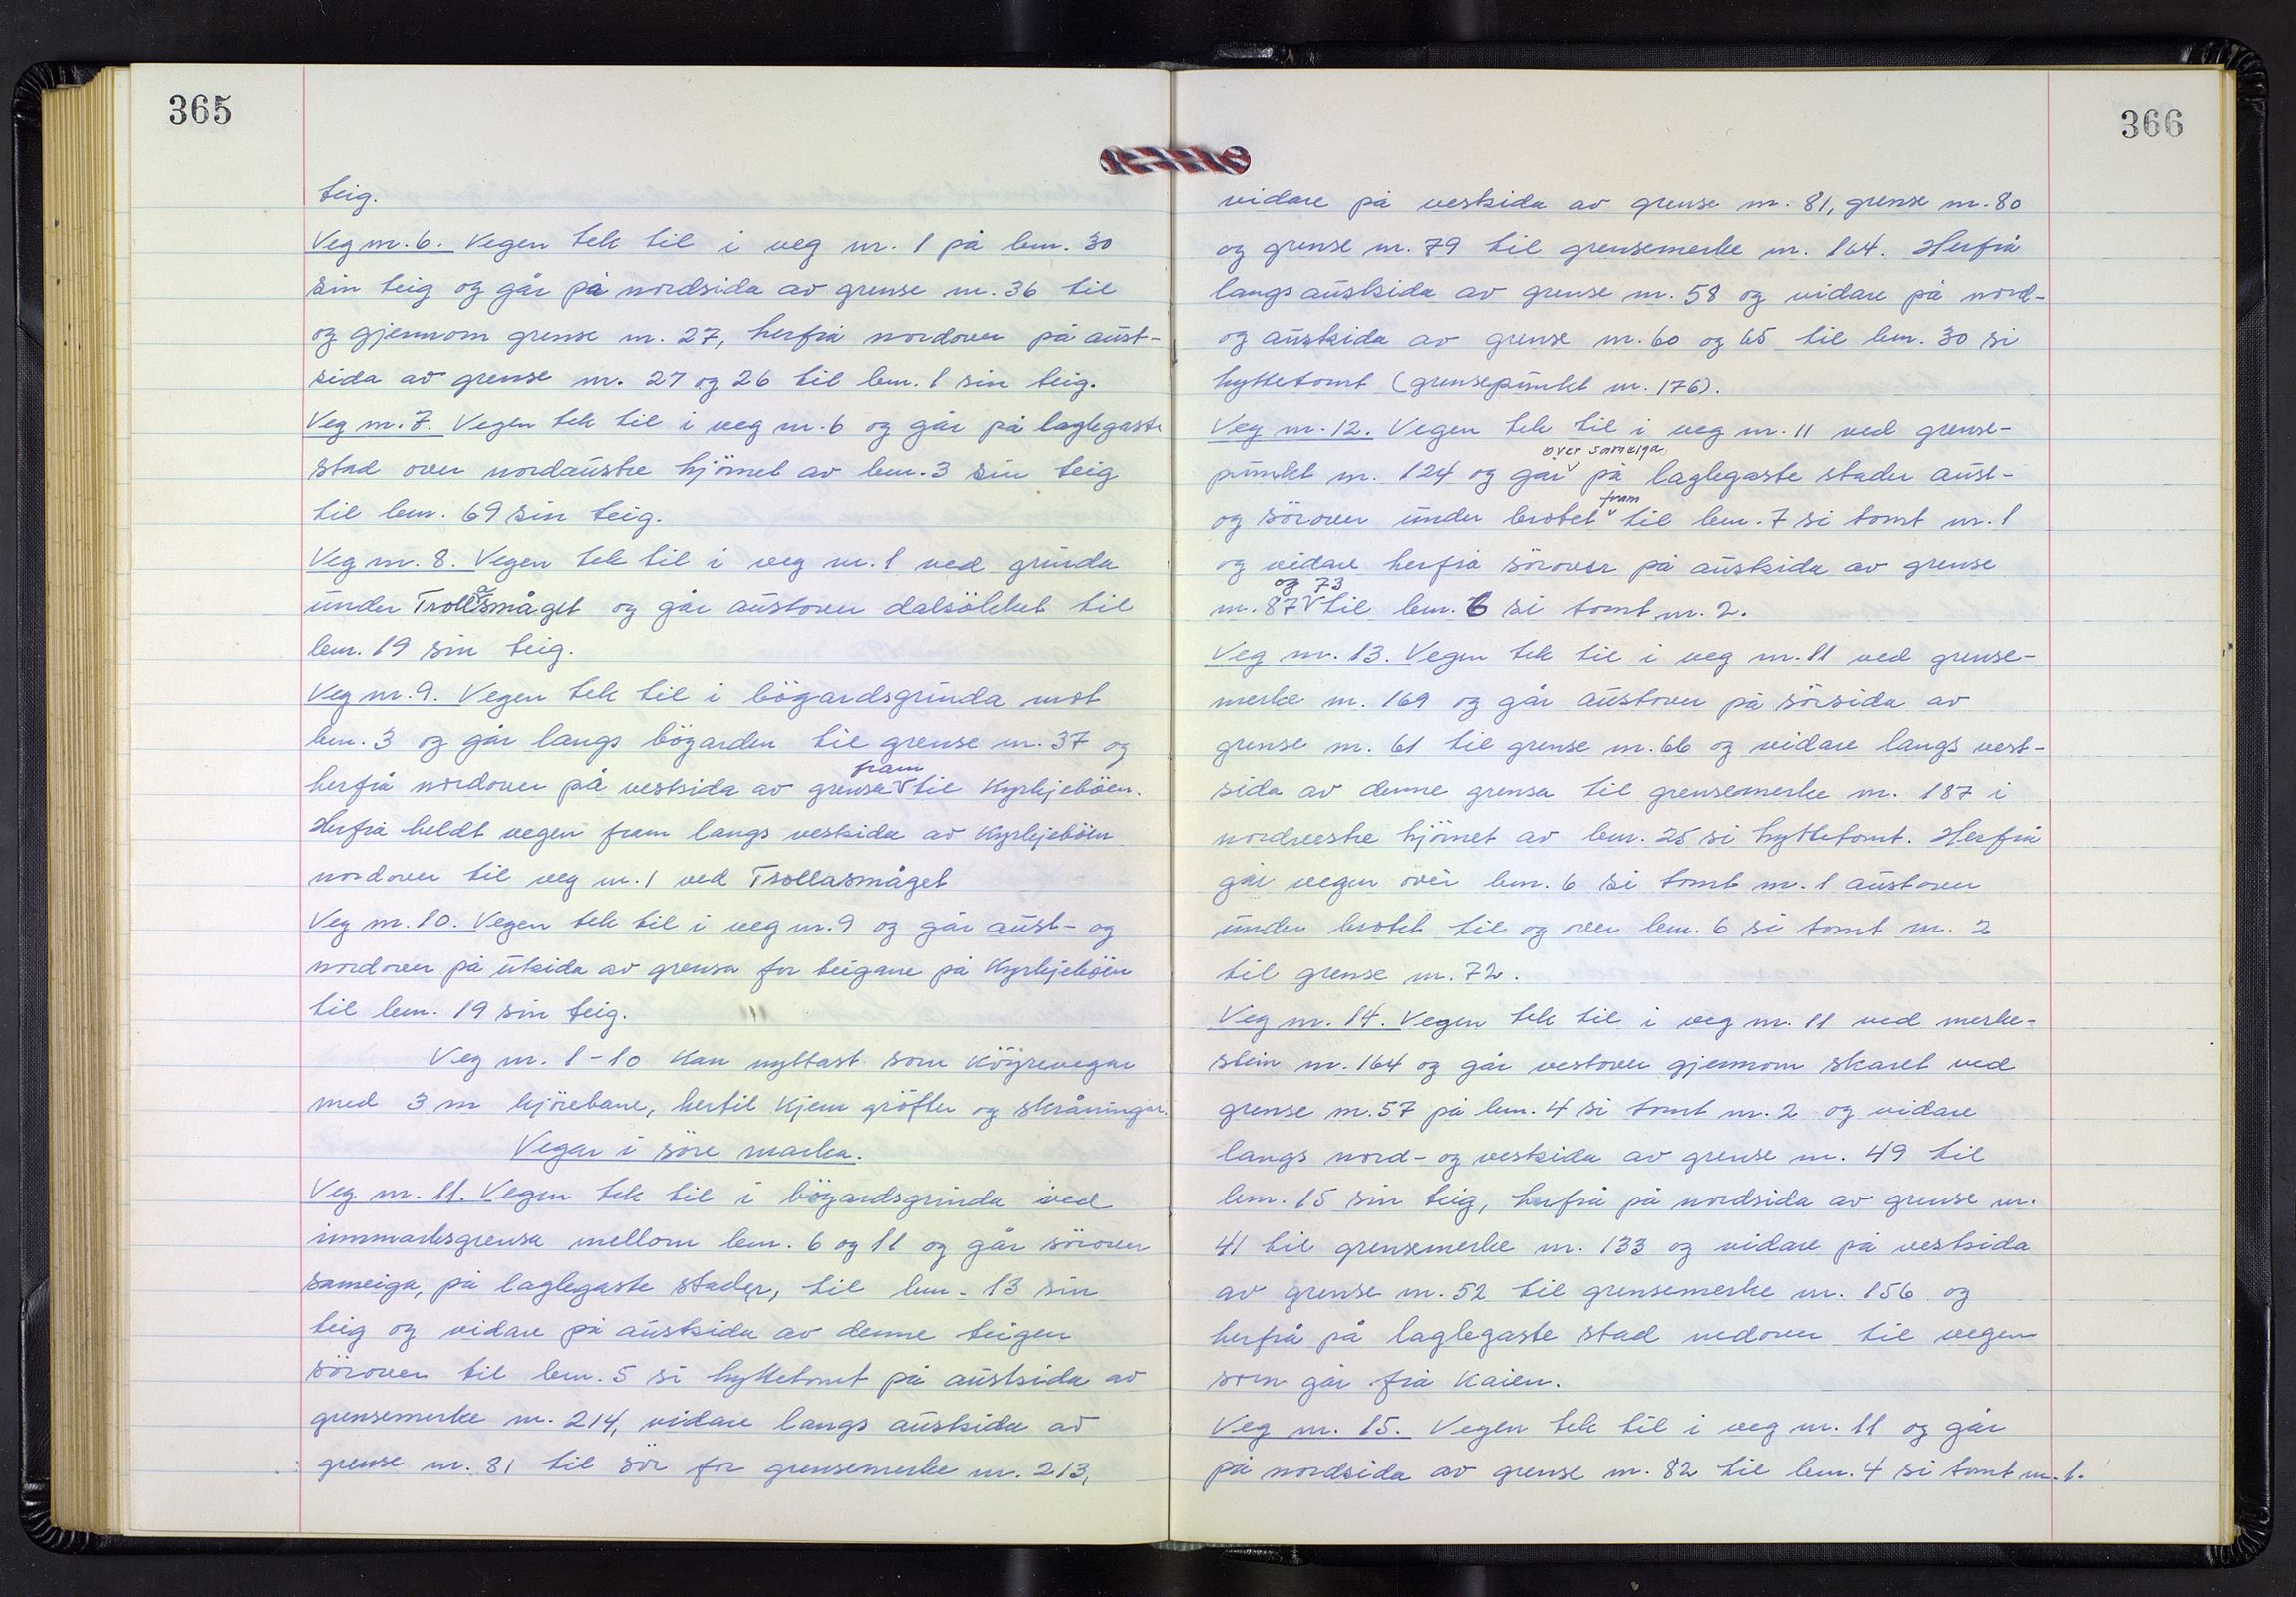 365
teig.
Veg nr. 6. Vegen tek til i veg nr. 1 på bnr. 30
sin teig og går på nordsida av grense nr. 36 til
og gjennom grense nr. 27, herfrå nordover på aust-
sida av grense nr. 27 og 26 til bnr. 1 sin teig.
Veg nr. 7. Vegen tek til i veg nr. 6 og går på laglegaste
stad over nordaustre hjörnet av bnr. 3 sin teig
til bnr. 69 sin teig.
Veg nr. 8. Vegen tek til i veg nr. 1 ved grinda
under Trollasmåget og går austover dalsökket til
bnr. 19 sin teig.
Veg nr. 9. Vegen tek til i bögardsgrinda mot
bnr. 3 og går langs bögarden til grense nr. 37 og
herfrå nordover på vestsida av grensa fram til Kyrkjeböen.
Herfrå heldt vegen fram langs vestsida av Kyrkjeböen
nordover til veg nr. 1 ved Trollasmåget
Veg nr. 10. Vegen tek til i veg nr. 9 og går aust- og
nordover på utsida av grensa for teigane på Kyrkjeböen
til bnr. 19 sin teig.
Veg nr. 1-10 kan nyttast som köyrevegar
med 3 m kjörebane, hertil kjem gröfter og skråningar.
Vegar i söre marka.
Veg nr. 11. Vegen tek til i bögardsgrinda ved
innmarksgrensa mellom bnr. 6 og 11 og går sörover
sameiga, på laglegaste stader, til bnr. 13 sin
teig og vidare på austsida av denne teigen
sörover til bnr. 5 si hyttetomt på austsida av
grensemerke nr. 214, vidare langs austsida av
grense nr. 81 til sör for grensemerke nr. 213,
366
vidare på vestsida av grense nr. 81, grense nr. 80
og grense nr. 79 til grensemerke nr. 164. Herfrå
langs austsida av grense nr. 58 og vidare på nord-
og austsida av grense nr. 60 og 65 til bnr. 30 si
hyttetomt (grensepunkt nr. 176).
Veg nr. 12. Vegen tek til i veg nr. 11 ved grense-
punkt nr. 124 og går over sameiga på laglegaste stader aust-
og sörover under brotet fram til bnr. 7 si tomt nr. 1
og vidare herfrå sörover på austsida av grense
nr. 87 og 73 til bnr. 6 si tomt nr. 2.
Veg nr. 13. Vegen tek til i veg nr. 11 ved grense-
merke nr. 169 og går austover på sörsida av
grense nr. 61 til grense nr. 66 og vidare langs vest-
sida av denne grensa til grensemerke nr. 187 i
nordvestre hjörnet av bnr. 25 si hyttetomt. Herfrå
går vegen over bnr. 6 si tomt nr. 1 austover
under brotet til og over bnr. 6 si tomt nr. 2
til grense nr. 72.
Veg nr. 14. Vegen tek til i veg nr. 11 ved merke-
stein nr. 164 og går vestover gjennom skaret ved
grense nr. 57 på bnr. 4 si tomt nr. 2 og vidare
langs nord- og vestsida av grense nr. 49 til
bnr. 15 sin teig, herfrå på nordsida av grense nr.
41 til grensemerke nr. 133 og vidare på vestsida
av grense nr. 52 til grensemerke nr. 156 og
herfrå på laglegaste stad nedover til vegen
som går frå kaien.
Veg nr. 15. Vegen tek til i veg nr. 11 og går
på nordsida av grense nr. 82 til bnr. 4 si tomt nr. 1.